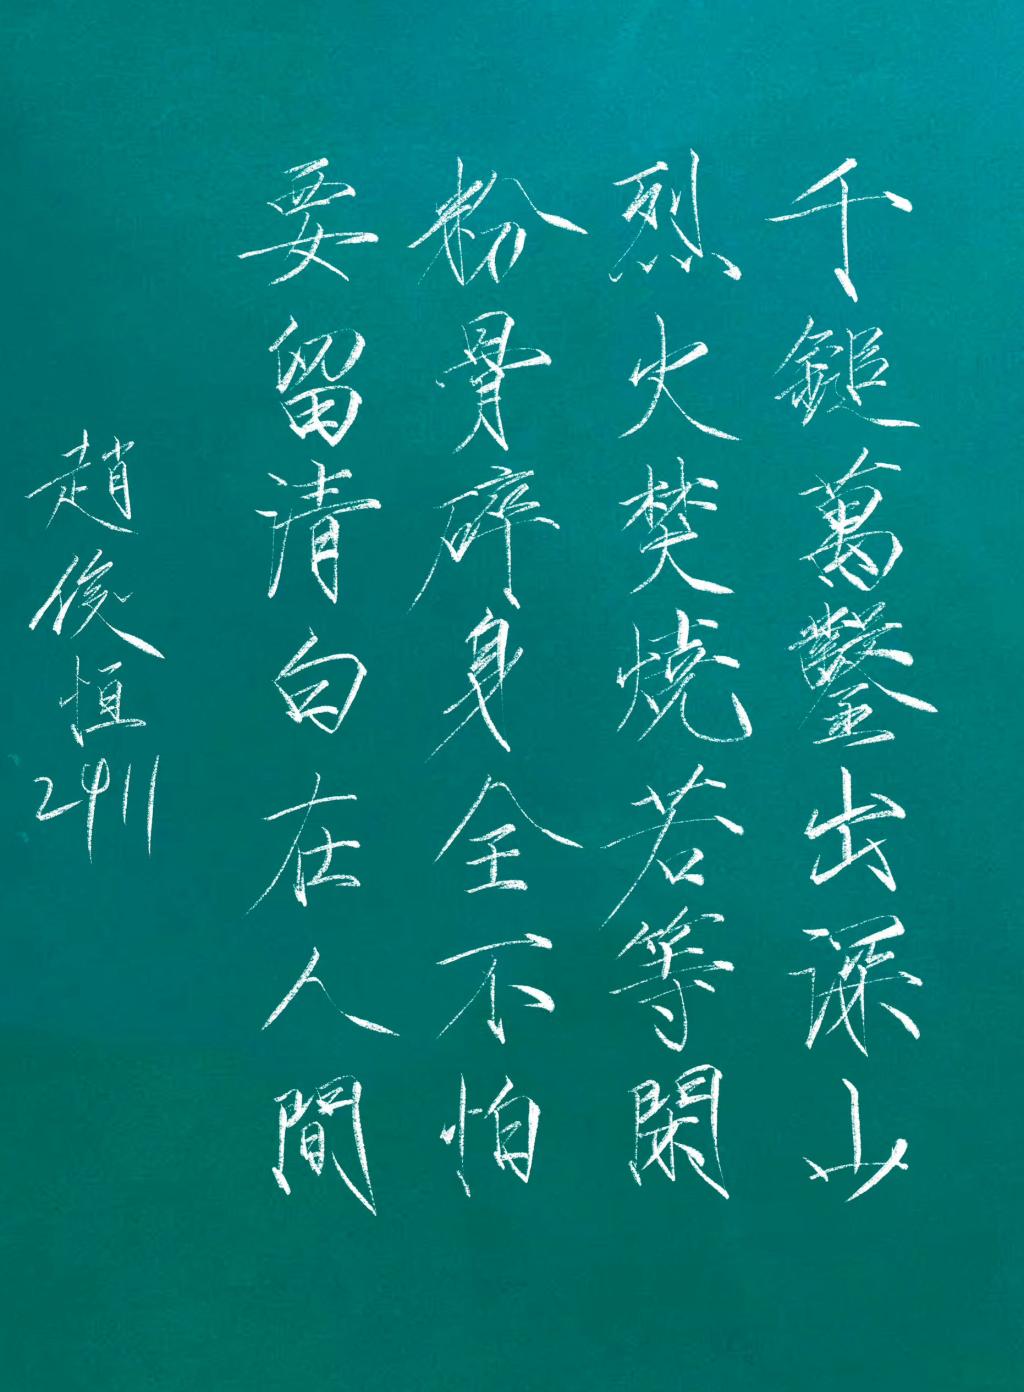 千鎚萬鑿出深山
烈火焚燒若等閑
粉骨碎身全不怕
要留清白在人間
趙俊恒
2411